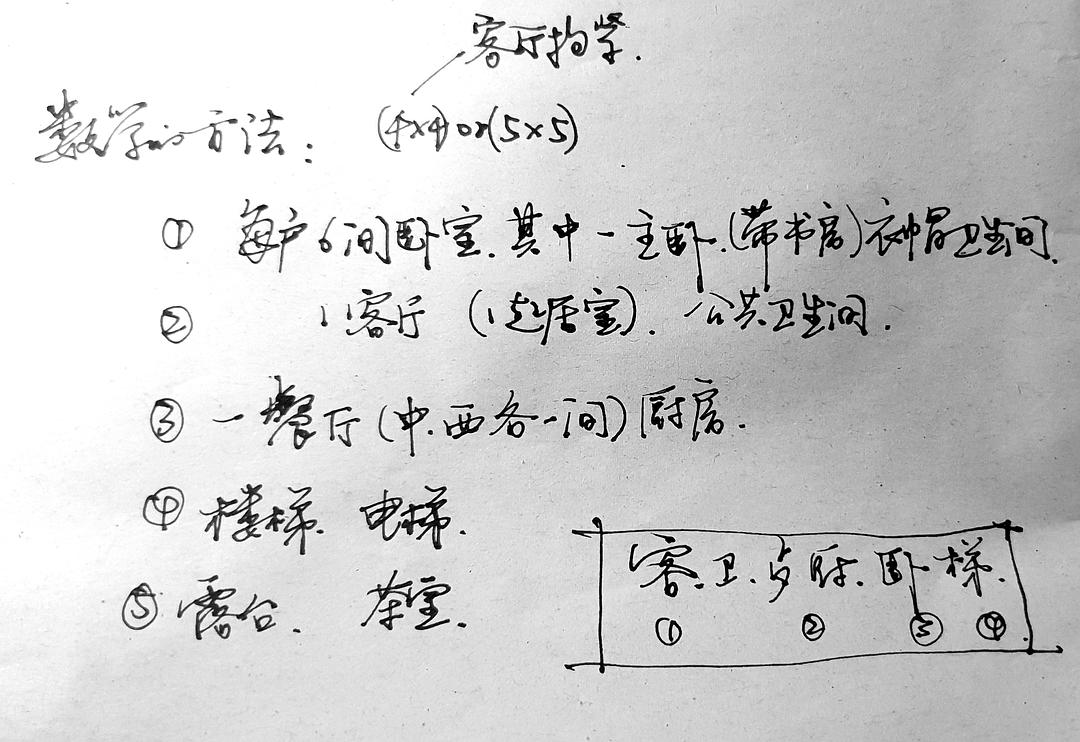 客厅拘紧.
数学的方法: (4×4) or (5×5)
① 每户6间卧室.其中一主卧.(带书房)衣帽卫生间.
② 1客厅 (1起居室). 公共卫生间.
③ 一餐厅(中.西各一间)厨房.
④ 楼梯. 电梯.
⑤ 露台. 茶室.
客.卫. 厨.卧 梯.
① ② ③ ④